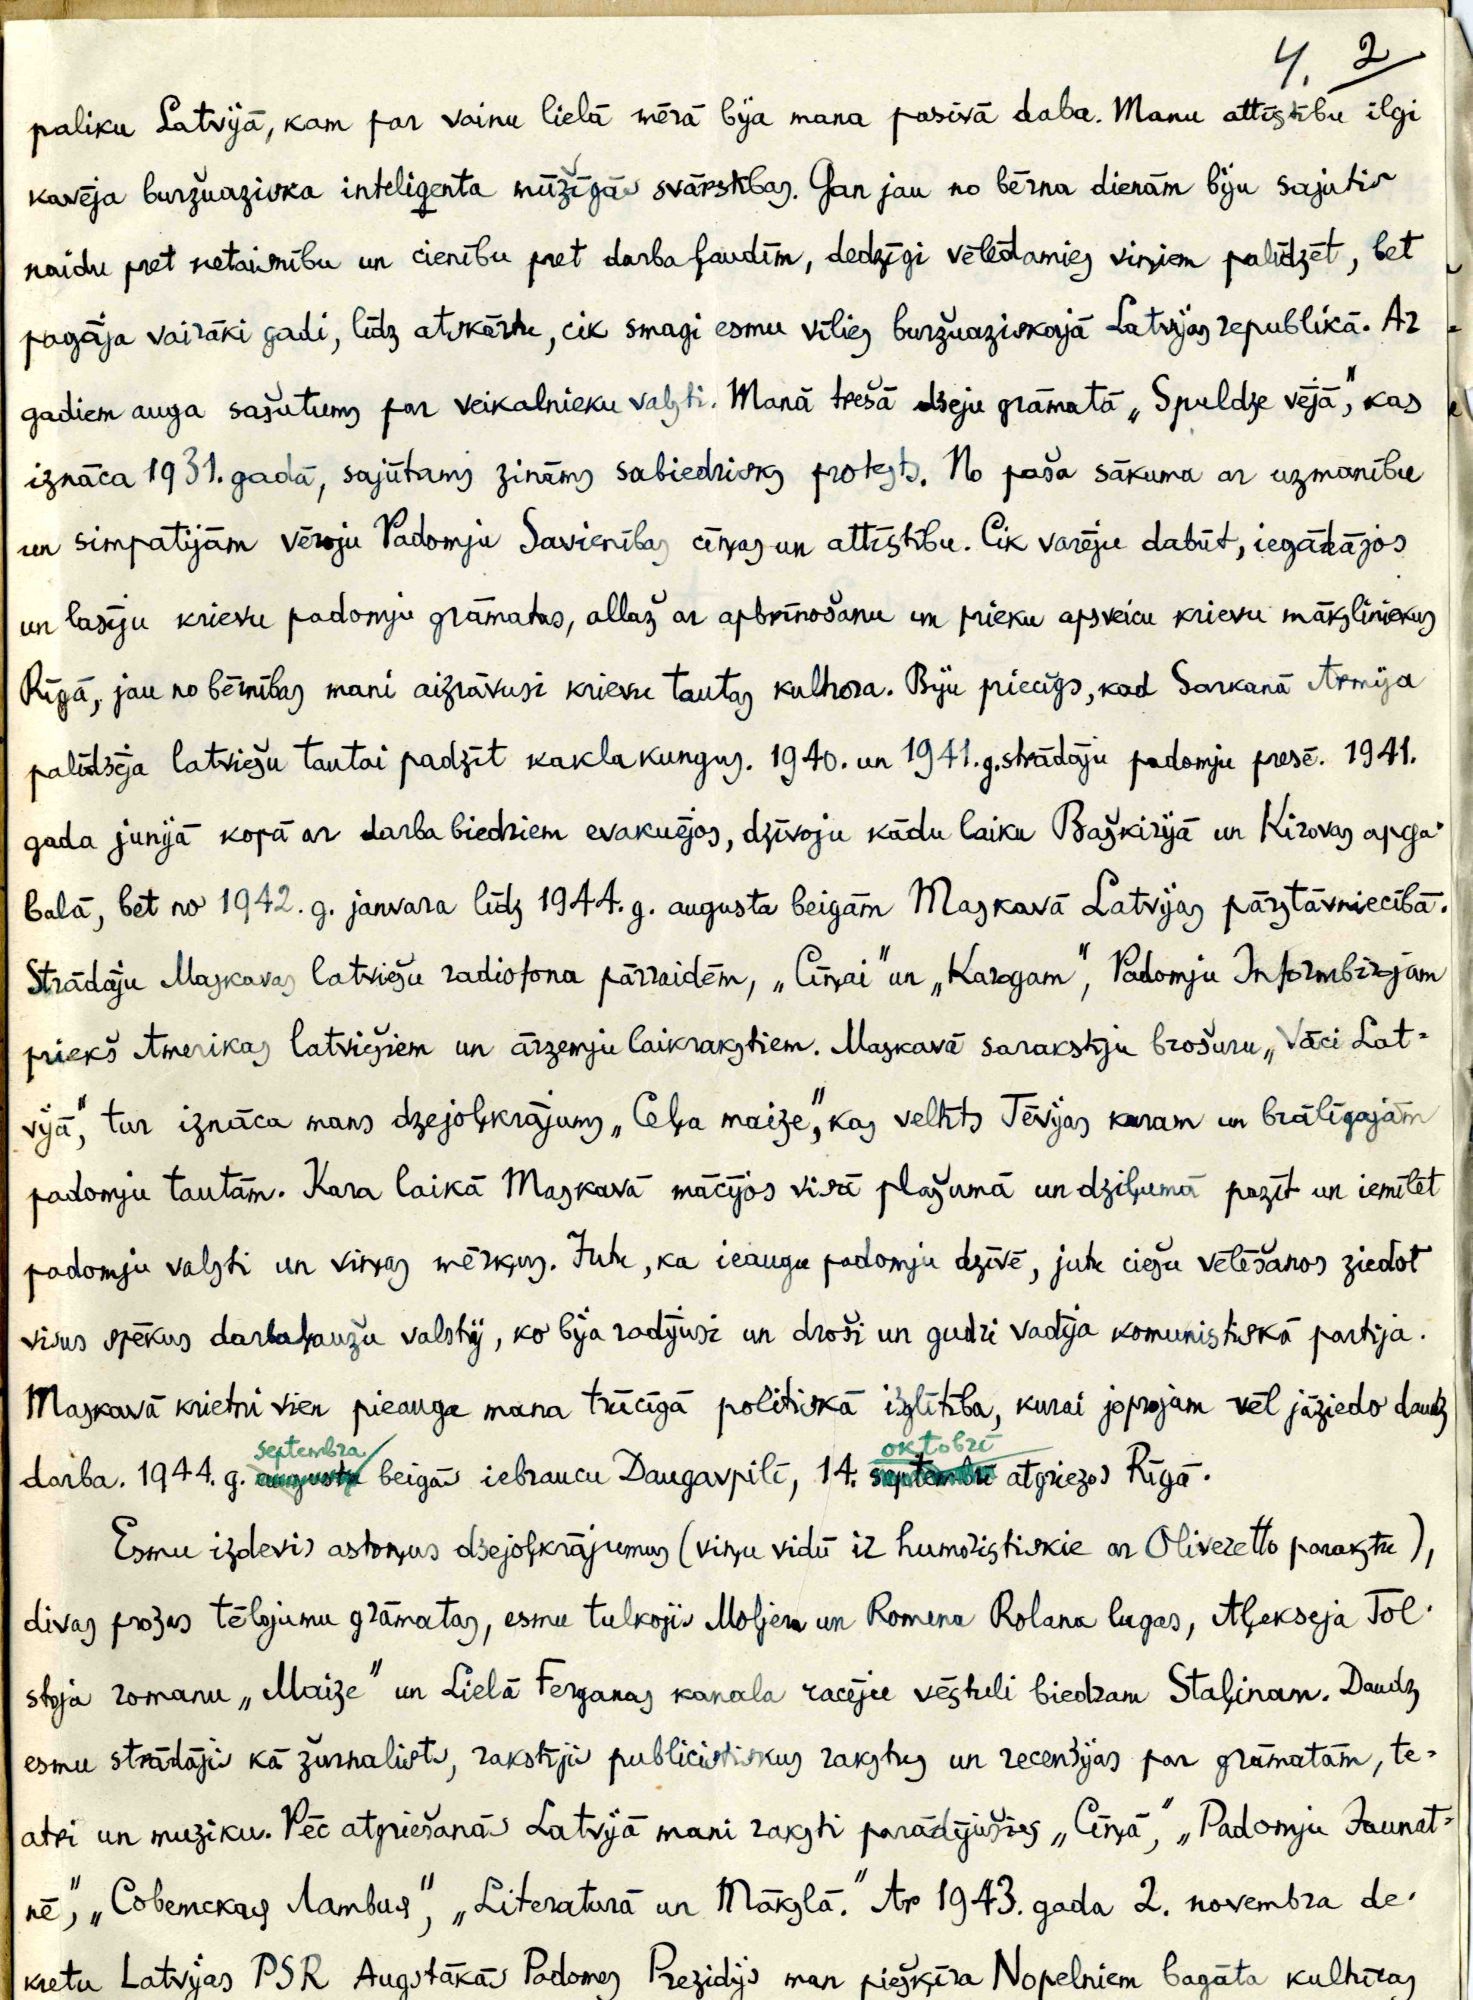 4. 2
paliku Latvijā, kam par vainu lielā mērā bija mana pasīvā daba. Manu attīstību ilgi
kavēja buržuaziska inteliģenta mūžīgās svārstības. Gan jau no bērna dienām biju sajutis
naidu pret netaisnību un cienību pret darbaļaudīm, dedzīgi vēlēdamies viņiem palīdzēt, bet
pagāja vairāki gadi, līdz atskārtu, cik smagi esmu vīlies buržuaziskajā Latvijas republikā. Ar
gadiem auga sašutums par veikalnieku valsti. Manā trešā dzeju grāmatā „Spuldze vējā", kas
iznāca 1931. gadā, sajūtams zināms sabiedrisks protests. No paša sākuma ar uzmanību
un simpatijām vēroju Padomju Savienības cīņas un attīstību. Cik varēju dabūt, iegādājos
un lasīju krievu padomju grāmatas, allaž ar apbrīnošanu un prieku apsveicu krievu māksliniekus
Rīgā, jau no bērnības mani aizrāvusi krievu tautas kultura. Biju priecīgs, kad Sarkanā Armija
palīdzēja latviešu tautai padzīt kakla kungus. 1940. un 1941. g. strādāju padomju presē. 1941.
gada junijā kopā ar darba biedriem evakuējos, dzīvoju kādu laiku Baškirijā un Kirovas apga-
balā, bet no 1942. g. janvara līdz 1944. g. augusta beigām Maskavā Latvijas pārstāvniecībā.
Strādāju Maskavas latviešu radiofona pārraidēm, „Cīņai" un „Karogam", Padomju Informbirojam
priekš Amerikas latviešiem un ārzemju laikrakstiem. Maskavā sarakstīju brošuru „Vāci Lat-
vijā", tur iznāca mans dzejoļkrājums „Ceļa maize", kas veltīts Tēvijas karam un brālīgajām
padomju tautām. Kara laikā Maskavā mācījos visā plašumā un dziļumā pazīt un iemīlēt
padomju valsti un viņas mērķus. Jutu, ka ieaugu padomju dzīvē, jutu ciešu vēlēšanos ziedot
visus spēkus darbaļaužu valstij, ko bija radījusi un droši un gudri vadīja komunistiskā partija.
Maskavā krietni vien pieauga mana trūcīgā politiskā izglītība, kurai joprojām vēl jāziedo daudz
septembra oktobrī
darba. 1944. g. augusta beigās iebraucu Daugavpilī, 14. septembrī atgriezos Rīgā.
Esmu izdevis astoņus dzejoļkrājumus (viņu vidū ir humoristiskie ar Oliveretto parakstu),
divas prozas tēlojumu grāmatas, esmu tulkojis Moljera un Romena Rolana lugas, Aļekseja Tol-
stoja romanu „Maize" un Lielā Ferganas kanala racēju vēstuli biedram Staļinam. Daudz
esmu strādājis kā žurnalists, rakstījis publicistiskus rakstus un recenzijas par grāmatām, te-
atri un muziku. Pēc atgriešanās Latvijā mani raksti parādījušies „Cīņā", „Padomju Jaunat-
nē", „Советская Латвия", „Literaturā un Mākslā." Ar 1943. gada 2. novembra de-
kretu Latvijas PSR Augstākās Padomes Prezidijs man piešķīra Nopelniem bagāta kultūras